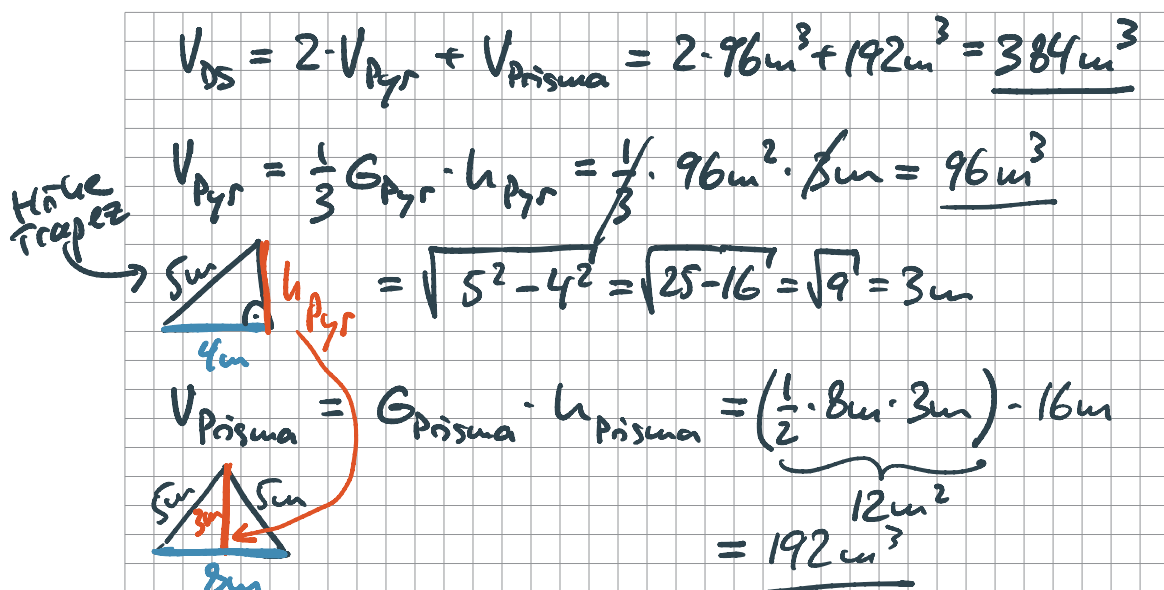 V_DS = 2·V_Pyr + V_Prisma = 2·96m³ + 192m³ = 384m³
V_Pyr = 1/3 G_Pyr · h_Pyr = 1/3 · 96m² · 3m = 96m³
Höhe
Trapez
5m
h_Pyr = √(5² - 4²) = √(25-16) = √9 = 3m
4m
V_Prisma = G_Prisma · h_Prisma = (1/2 · 8m · 3m) · 16m
12m²
5m 3m 5m
= 192m³
8m